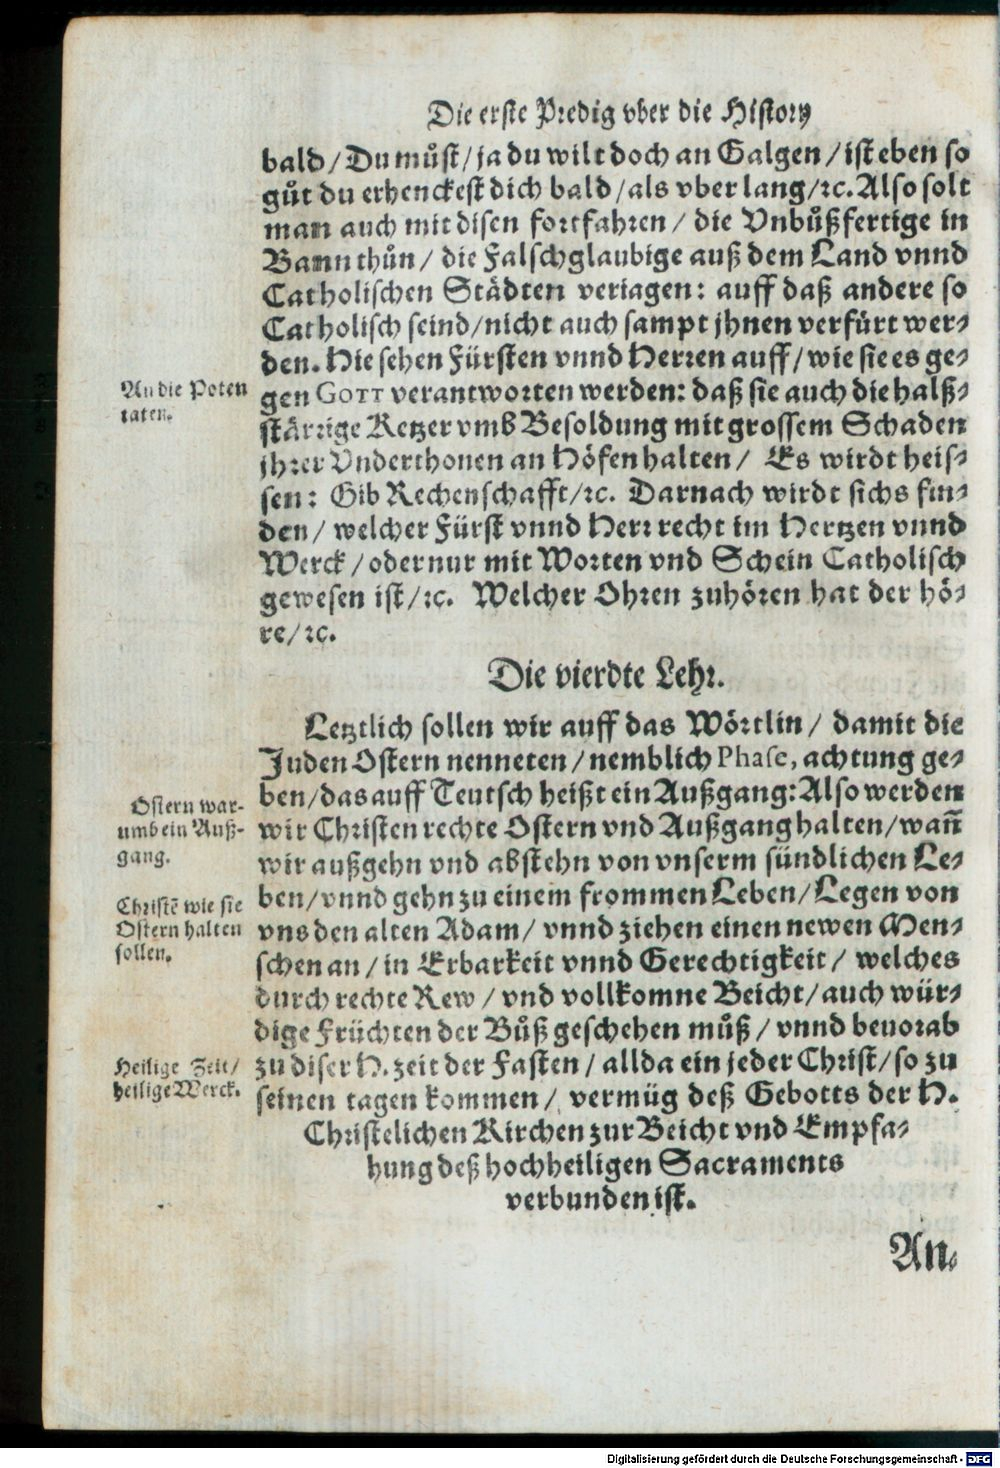 Die erste Predig vber die History
bald/Du můst/ja du wilt doch an Galgen/ist eben so
gůt du erhenckest dich bald/als vber lang/ꝛc. Also solt
man auch mit disen fortfahren/ die Vnbůßfertige in
Bann thůn/ die Falschglaubige auß dem Land vnnd
Catholischen Städten veriagen: auff daß andere so
Catholisch seind/nicht auch sampt jhnen verfürt wer-
den. Hie sehen Fürsten vnnd Herren auff/wie sie es ge-
gen GOTT verantworten werden: daß sie auch die halß-
stärrige Ketzer vmb Besoldung mit grossem Schaden
jhrer Vnderthonen an Höfen halten/ Es wirdt heis-
sen: Gib Rechenschafft/ꝛc. Darnach wirdt sichs fin-
den/ welcher Fürst vnnd Herr recht im Hertzen vnnd
Werck/oder nur mit Worten vnd Schein Catholisch
gewesen ist/ꝛc. Welcher Ohren zuhören hat der hö-
re/ꝛc.
An die Poten
taten.
Die vierdte Lehr.
Letztlich sollen wir auff das Wörtlin/ damit die
Juden Ostern nenneten/nemblich Phase, achtung ge-
ben/das auff Teutsch heißt ein Außgang: Also werden
wir Christen rechte Ostern vnd Außgang halten/wañ
wir außgehn vnd abstehn von vnserm sündlichen Le-
ben/vnnd gehn zu einem frommen Leben/Legen von
vns den alten Adam/ vnnd ziehen einen newen Men-
schen an/in Erbarkeit vnnd Gerechtigkeit/ welches
durch rechte Rew/ vnd vollkomne Beicht/auch wür-
dige Früchten der Bůß geschehen můß/ vnnd beuorab
zu diser H. zeit der Fasten/ allda ein jeder Christ/so zu
seinen tagen kommen/ vermüg deß Gebotts der H.
Christelichen Kirchen zur Beicht vnd Empfa-
hung deß hochheiligen Sacraments
verbunden ist.
Ostern war-
umb ein Auß-
gang.
Christē wie sie
Ostern halten
sollen.
Heilige Zeit/
heilige Werck.
An-
Digitalisierung gefördert durch die Deutsche Forschungsgemeinschaft - DFG